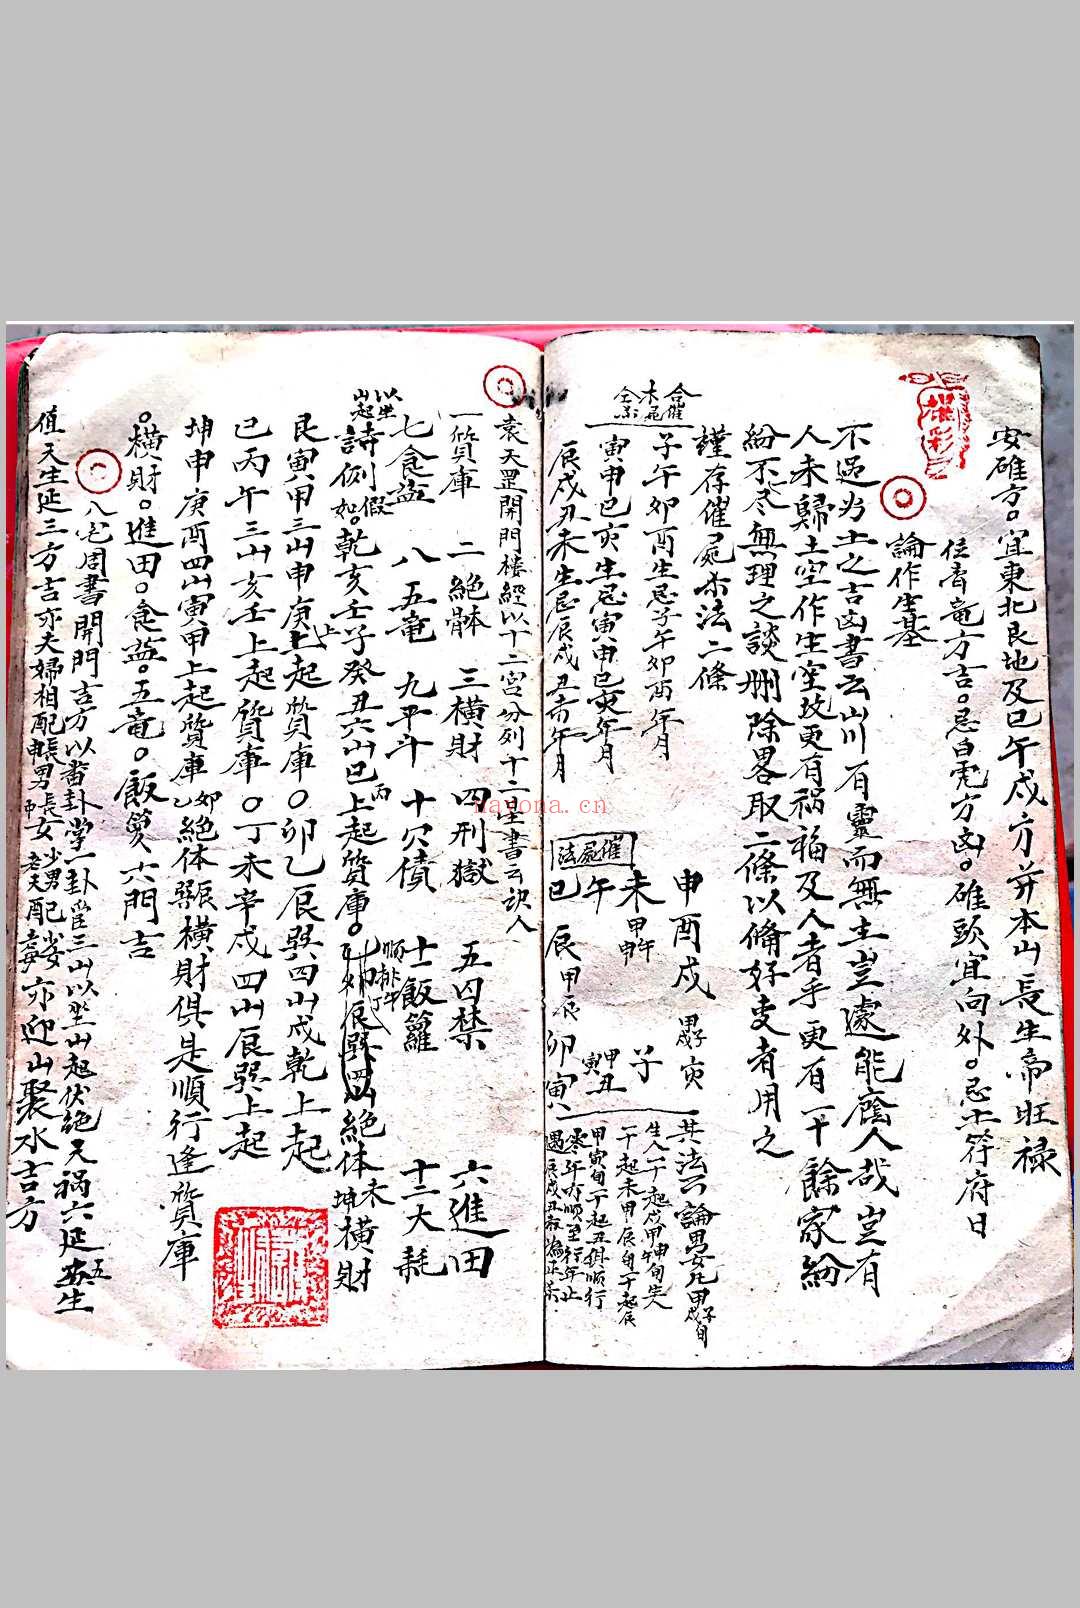 安碓方。宜東北艮地及巳午戌方并本山長生帝旺祿
住青竜方吉。忌白虎方凶。碓頭宜向外。忌土符府日
論作生基
不過为土之吉凶書云山川有靈而無主豈處能廕人哉豈有
人未歸土空作生茔故更有禍福及人者乎更有一十餘家紛
紛不尽無理之談删除畧取二條以俻好叓者用之
謹存催屍杀法二條
合催
木屍
子午卯酉生忌子午卯酉年月
寅申巳亥生忌寅申巳亥年月
辰戌丑未生忌辰戌丑未年月
催屍法
申酉戌
未
午
巳
辰
甲辰
卯
甲寅
寅
丑
子
其法不論男女凡甲子甲戌旬
生人一十起戌甲申甲午旬生
一十起未甲辰旬一十起辰
甲寅旬一十起丑俱順行
零年亦順至行年止
遇辰戌丑未為正杀
袁天罡開門樓經以十二宮分列十二星書云訣人
一貭庫 二絕體 三橫財 四刑獄 五囚禁 六進田
七食益 八五竜 九平斗 十穴債 十一飯籮 十二大耗
以坐山起
詩例假如。乾亥壬子癸丑六山巳丙上起貭庫。卯辰巽四山絕体未坤橫財
順排午丁
艮寅甲三山申庚上起貭庫。卯乙辰巽四山戌乾上起
巳丙午三山亥壬上起貭庫。丁未辛戌四山辰巽上起
坤申庚酉四山寅甲上起貭庫如乙絕体辰巽橫財俱是順行逢貭庫
。橫財。進田。食益。五竜。飯籮六門吉
八宅周書開門吉方以畨卦掌一卦管三山以坐山起伏絕天禍六延五生
值天生延三方吉亦夫婦相配
亦迎山聚水吉方
nayona.cn